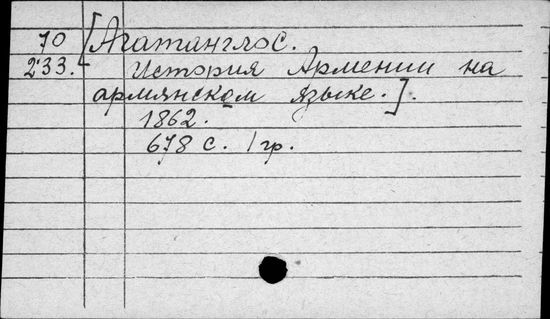 70 [Агатанглос.
233. История Армении на
армянском языке.].
1862.
678 с. 1 гр.